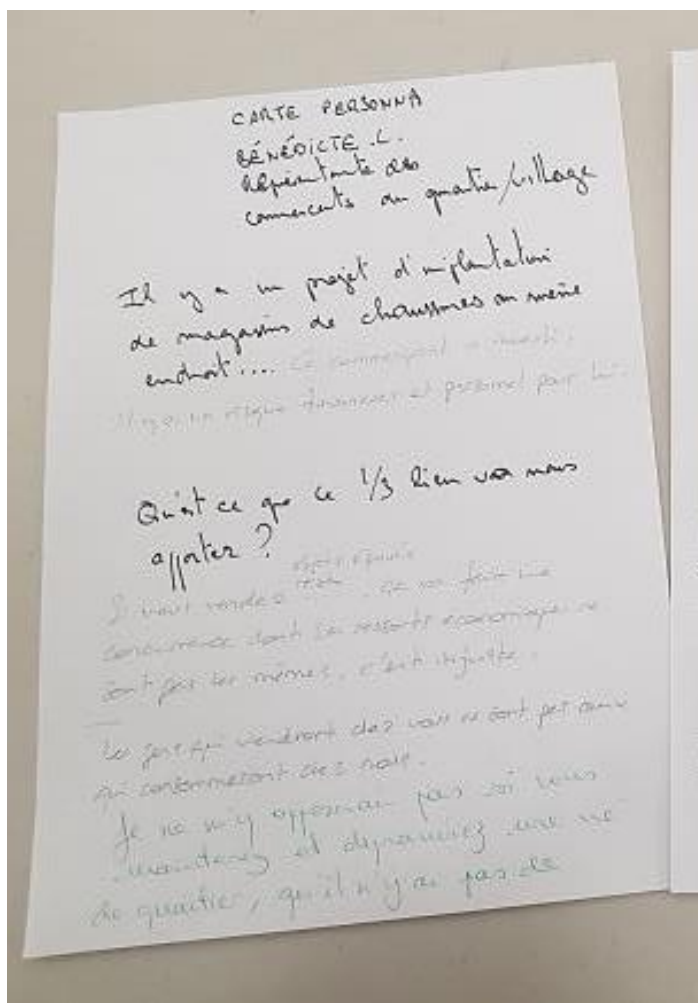 CARTE PERSONNA
BÉNÉDICTE .L.
Représentante des
commerçants du quartier/village
Il y a un projet d'implantation
de magasins de chaussures au même
endroit.... Ce commerçant a investi,
Il y a un risque financier et personnel pour lui.
Qu'est ce que ce 1/3 lieu va nous
apporter ?
Si vous vendez ça va faire une
concurrence dont les ressorts économiques ne
sont pas les mêmes, c'est injuste.
Les gens qui viendront chez vous ne sont pas ceux
qui consommeront chez nous.
Je ne m'y opposerai pas si vous
maintenez et dynamisez une vie
de quartier, qu'il n'y ai pas de